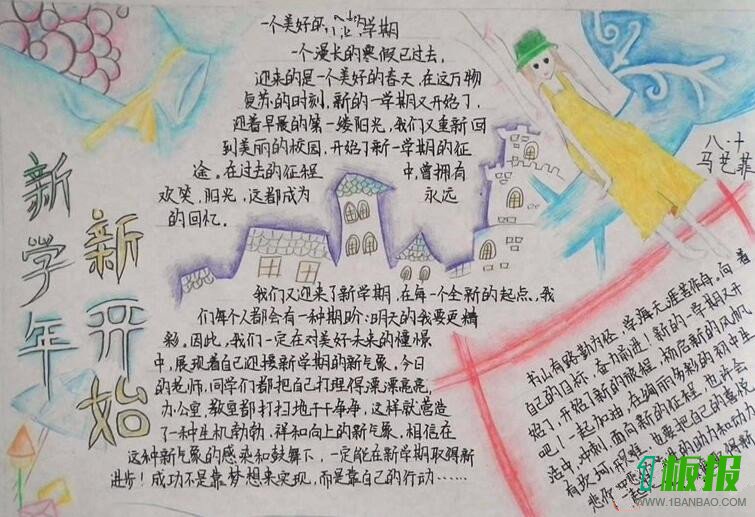 新学年
新开始
一个美好的学期
一个漫长的寒假已过去，
迎来的是一个美好的春天，在这万物
复苏的时刻，新的一学期又开始了，
迎着早晨的第一缕阳光，我们又重新回
到美丽的校园，开始了新一学期的征
途。在过去的征程中，曾拥有
欢笑，阳光，这都成为永远
的回忆。
我们又迎来了新学期，在每一个全新的起点、我
们每个人都会有一种期盼：明天的我要更精
彩。因此，我们一定在对美好未来的憧憬
中，展现着自己迎接新学期的新气象，今日
的老师，同学们都把自己打理得漂漂亮亮，
办公室，教室都打扫地干干净净，这样就营造
了一种生机勃勃，祥和向上的新气象，相信在
这种新气象的感染和鼓舞下，一定能在新学期取得新
进步！成功不是靠梦想来实现，而是靠自己的行动……
八·十
马艺菲
书山有路勤为径，学海无涯苦作舟，向着
自己的目标，奋力前进！新的一学期又开
始了，开始了新的旅程，扬启新的风帆
吧！一起加油，在绚丽多彩的初中生
活中，冲刺，面向新的征程，也许会
有坎坷，困难，也要把自己的喜怒
板报
WWW.1BANBAO.COM